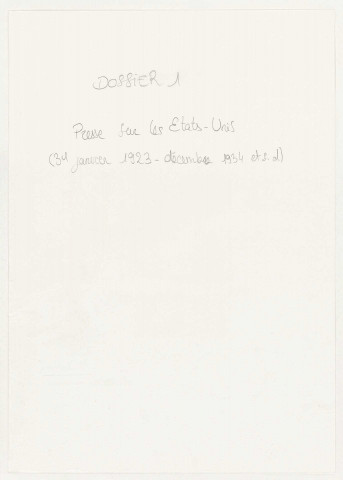 DOSSIER 1
Presse sur les Etats-Unis
(31 janvier 1923 - décembre 1934 et s.d)